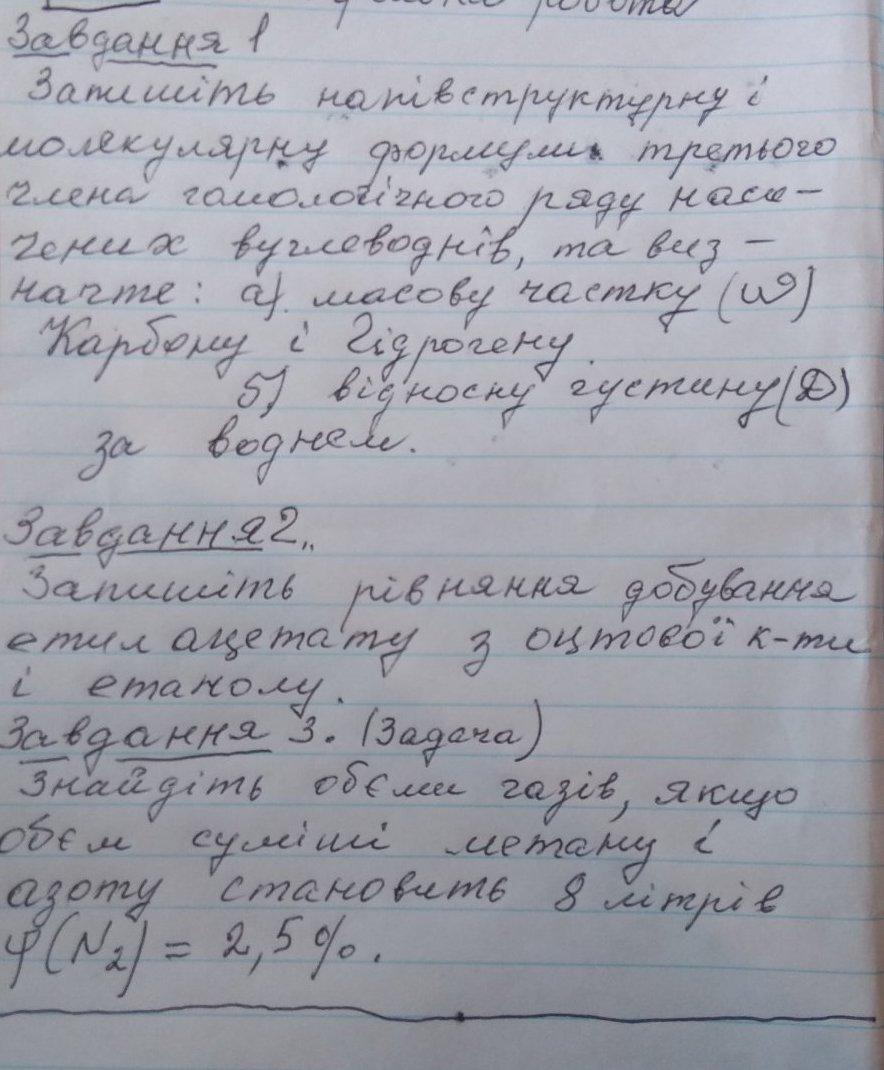 робота
Завдання 1
Запишіть напівструктурну і
молекулярну формули третього
члена гомологічного ряду наси-
чених вуглеводнів, та виз-
начте: а). масову частку (ω)
Карбону і Гідрогену.
б) відносну густину (D)
за воднем.
Завдання 2.
Запишіть рівняння добування
етил ацетату з оцтової к-ти
і етанолу.
Завдання 3. (Задача)
Знайдіть обєми газів, якщо
обєм суміші метану і
азоту становить 8 літрів
φ(N₂) = 2,5%.